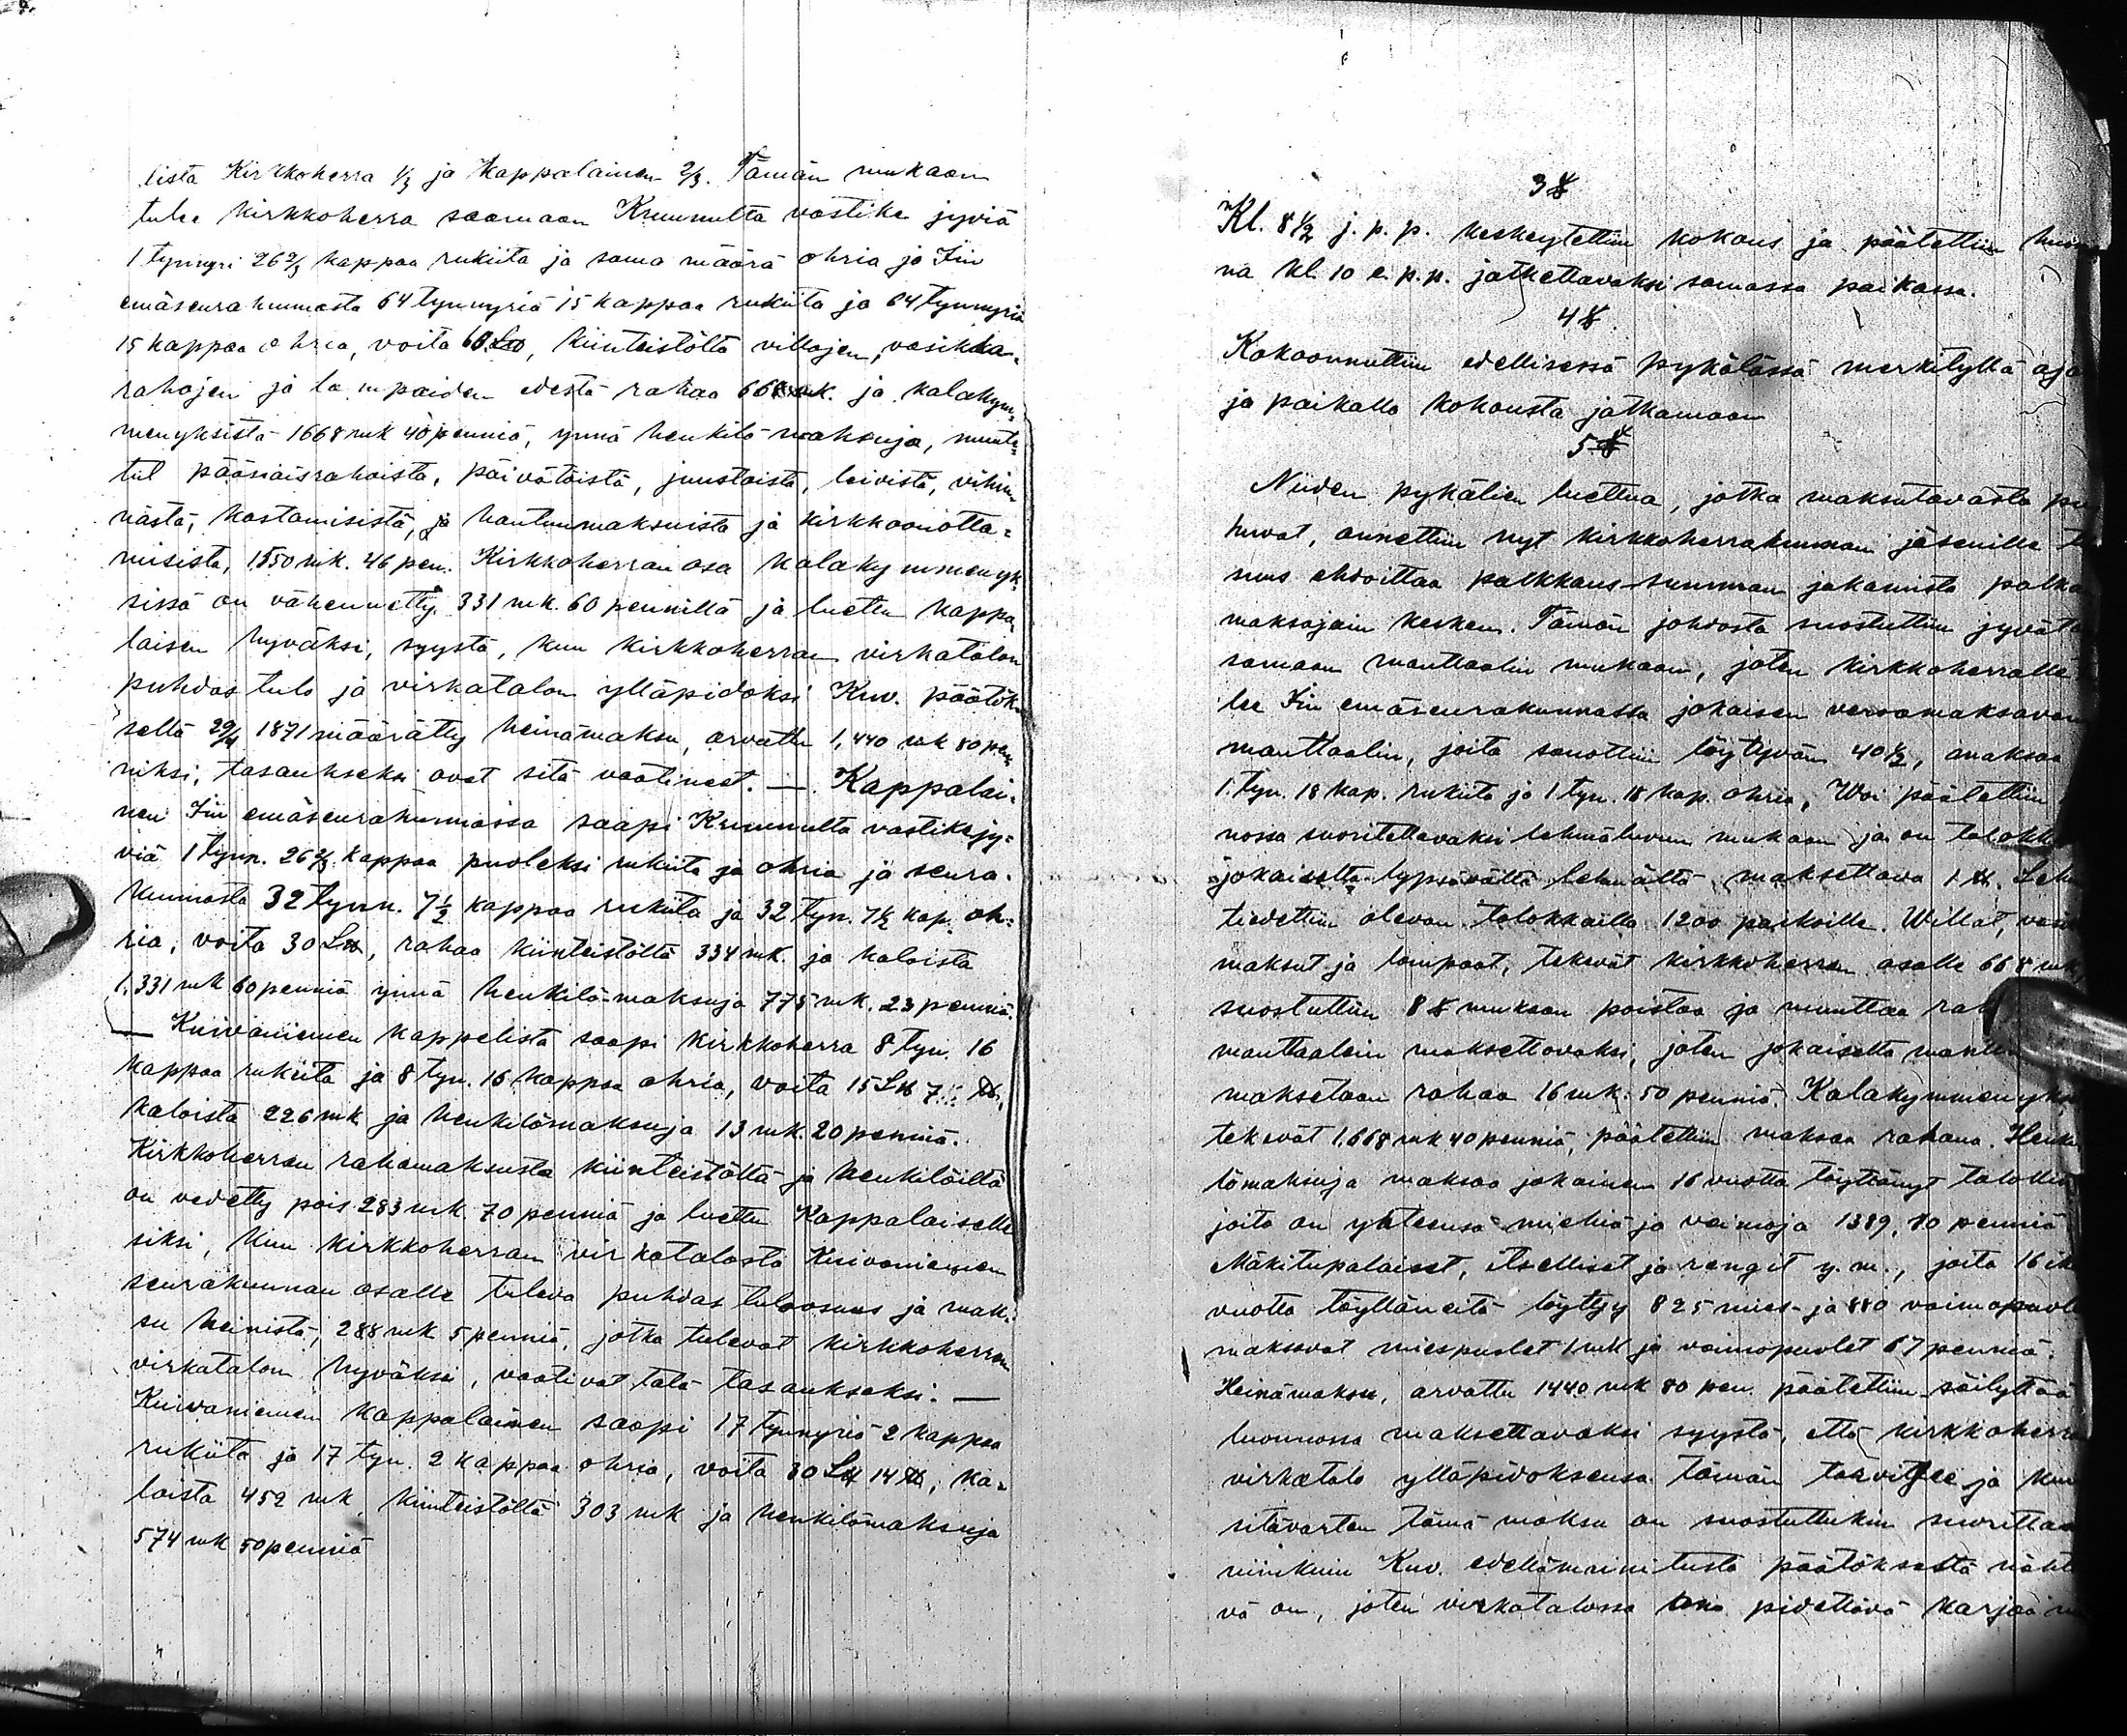 lista Kirkkoherra 1/3 ja Kappalainen 2/3. Tämän mukaan
tulee kirkkoherra saamaan Kruunulta vastike jyviä
1 tynnyri 26 2/3 kappaa rukiita ja sama määrä ohria ja Iin
emäseurakunnasta 64 tynnyriä 15 kappaa rukiita ja 64 tynnyriä
15 kappaa ohria, voita 60 L℔, kiinteistöltä villojen, vasikka-
rahojen ja lampaiden edestä rahaa 668 mk. ja kalakym-
menyksistä 1668 mk 40 penniä, ynnä henkilö maksuja, muute-
tut pääsiäisrahoista, päivätöistä, juustoista, leivistä,
nästä, kastamisista, ja hautuumaksuista ja kirkkoonotta=
misista, 1550 mk. 46 pen. Kirkkoherran osa kalakymmenyk-
sissä on vähennetty 331 mk. 60 pennillä ja luettu kappa-
laisen hyväksi, syystä, kun kirkkoherran virkatalon
puhdas tulo ja virkatalon ylläpidoksi Kuv. päätök-
sellä 29/4 1871 määrätty heinämaksu, arvattu 1,440 mk 80 pen-
niksi, tasaukseksi ovat sitä vaatineet. — Kappalai-
nen Iin emäseurakunnassa saapi Kruunulta vastikejy=
viä 1 tynn. 26 2/3 kappaa puoleksi rukiita ja ohria ja seura-
kunnasta 32 tynn. 7 1/2 kappaa rukiita ja 32 tyn. 7 1/2 kap. oh=
ria, voita 30 L℔, rahaa kiinteistöltä 334 mk. ja kaloista
1,331 mk 60 penniä ynnä henkilö-maksuja 775 mk. 23 penniä.
— Kuivaniemen kappelista saapi kirkkoherra 8 tyn. 16
kappaa rukiita ja 8 tyn. 16 kappaa ohria, voita 15 L℔ 7 ℔,
kaloista 226 mk ja henkilömaksuja 13 mk. 20 penniä.
Kirkkoherran rahamaksusta kiinteistöltä ja henkilöiltä
on vedetty pois 283 mk. 70 penniä ja luettu Kappalaiselle
siksi, kun kirkkoherran virkatalosta Kuivaniemen
seurakunnan osalle tuleva puhdas tuloosuus ja mak-
su heinistä, 288 mk 5 penniä, jotka tulevat kirkkoherran
virkatalon hyväksi, vaativat tätä tasaukseksi. —
Kuivaniemen kappalainen saapi 17 tynnyriä 2 kappaa
rukiita ja 17 tyn. 2 kappaa ohria, voita 30 L℔ 14 ℔, ka-
loista 452 mk, kiinteistöltä 303 mk ja henkilömaksuja
574 mk 50 penniä
3 §
Kl. 8 1/2 j. p. p. keskeytettiin kokous ja päätettiin
na kl. 10 e. p. p. jatkettavaksi samassa paikassa.
4 §
Kokoonnuttiin edellisessä pykälässä merkityllä
ja paikalla kokousta jatkamaan
5 §
Niiden pykälien luettua, jotka maksutavasta
huvat, annettiin nyt kirkkoherrakunnan jäsenille
suus ehdoittaa palkkaus-summan jakamista
maksajain kesken. Tämän johdosta suostuttiin
samaan manttaalin mukaan, joten kirkkoherralle
lee Iin emäseurakunnassa jokaisen veroamaksavan
manttaalin, joita sanottiin löytyvän 40 1/2, maksaa
1. tyn. 18 kap. rukiita ja 1 tyn. 18 kap. ohria, Woi päätettiin
nossa suoritettavaksi lehmäluvun mukaan ja on
jokaiselta lypsävältä lehmältä maksettava 1 ℔.
tiedettiin olevan talokkailla 1200 paikoille. Willat,
maksut ja lampaat, tekevät kirkkoherran osalle 668 mk,
suostuttiin 8 § mukaan poistaa ja muuttaa
manttaalein maksettavaksi, joten jokaiselta
maksetaan rahaa 16 mk. 50 penniä. Kalakymmenykset
tekevät 1,668 mk 40 penniä, päätettiin maksaa rahana. Henki
lömaksuja maksaa jokainen 16 vuotta täyttänyt
joita on yhteensä miehiä ja vaimoja 1389, 80 penniä
Mäkitupalaiset, itselliset ja rengit y. m., joita 16
vuotta täyttäneitä löytyy 825 mies- ja 880
maksavat miespuolet 1 mk ja vaimopuolet 67 penniä.
Heinämaksu, arvattu 1440 mk 80 pen. päätettiin säilyttää
luonnossa maksettavaksi syystä, että kirkkoherran
virkatalo ylläpidoksensa tämän tarvitsee ja kun
sitävarten tämä maksu on suostuttukin
niinkuin Kuv. edellämainitusta päätöksestä
vä on, joten virkatalossa pidettävä karjaa